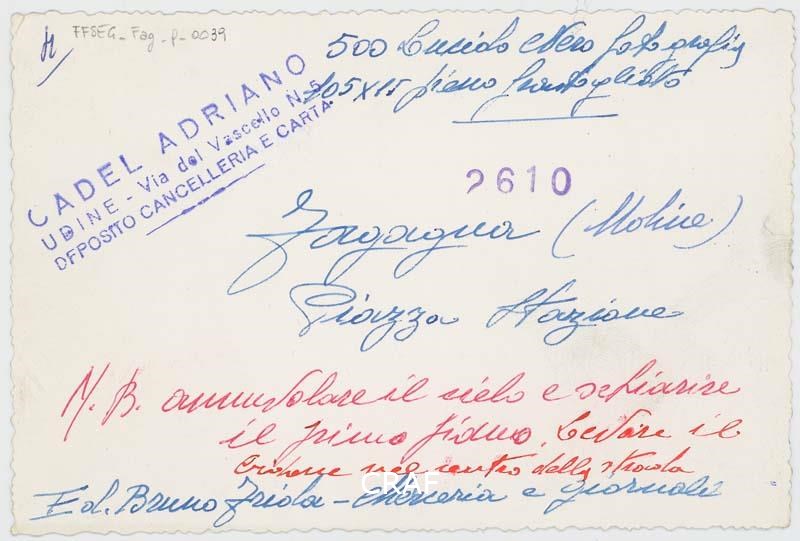 FFSEG_Fag_p_0039
500 Lucido Nero fotografia
105X15 pieno frastagliato
CADEL ADRIANO
UDINE - Via del Vascello N. 5
DEPOSITO CANCELLERIA E CARTA
2610
Fagagna (Udine)
Piazza Stazione
N.B. annuvolare il cielo e schiarire
il primo piano. Levare il
nel centro della strada
Ed. Bruno - e Giornali
CRAF